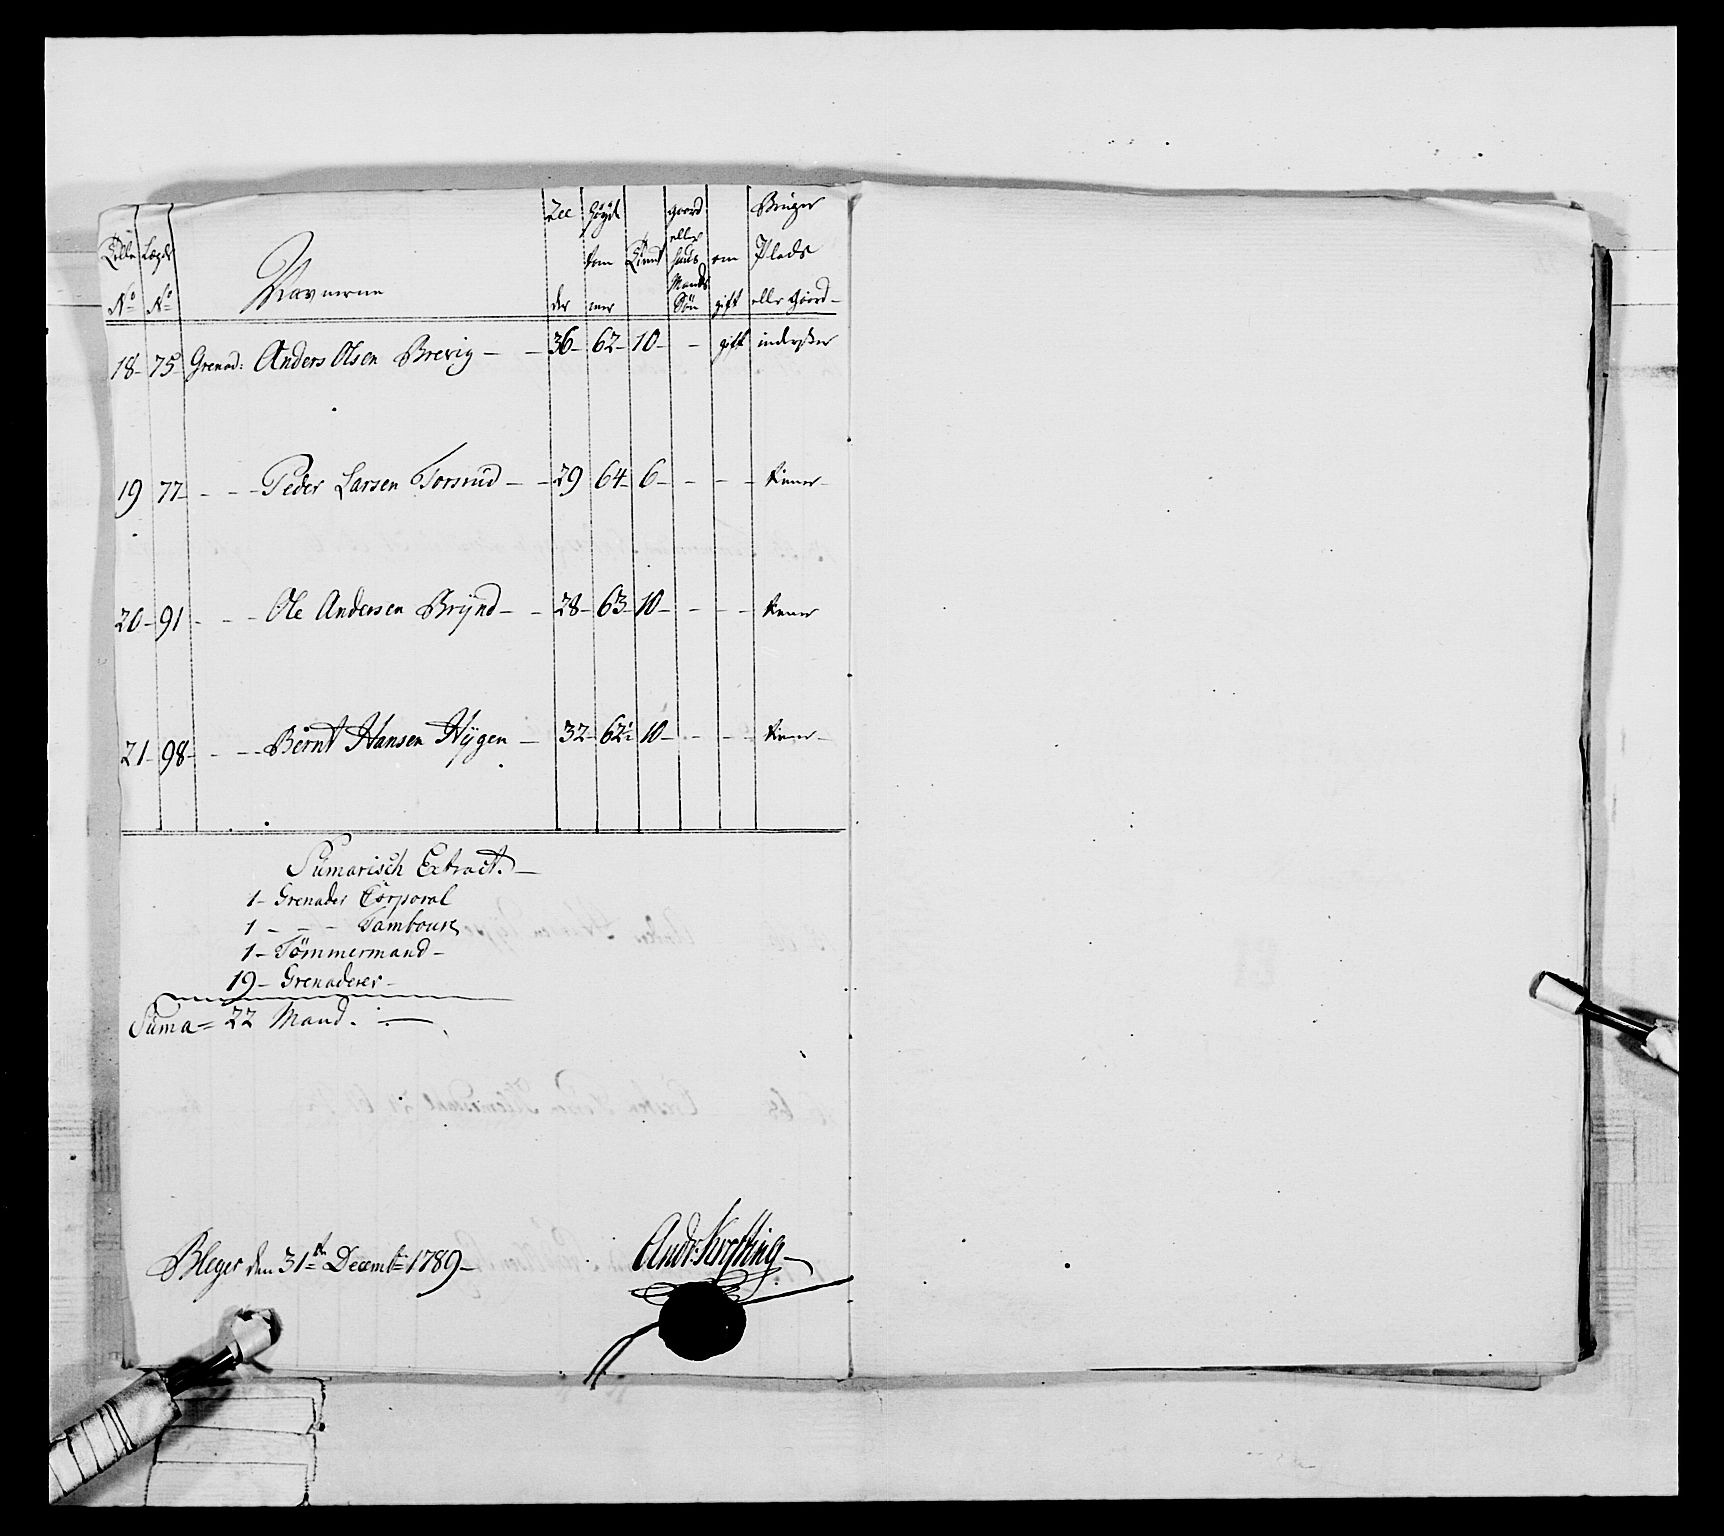 Rolle No Lægd No Navnerne Alder Høyde Tommer Tient gaard eller Huus Mands Søn om gift Bruger Plads eller Gaard
18 - 75 Grenad: Anders Olsen Brevig - - 36 - 62 - 10 - - gift inderster
19 77 - - - Peder Larsen Torsrud - - 29 64 - 6 - - - -
20 - 91 - - - Ole Andersen Brÿnd - - 28 - 63 - 10 - - - -
21 - 98 - - - Bernt Hansen Hÿgen - 32 - 62 10 - - - -
Sumarisch Extract. -
1 - Grenader Corporal
1 - - - Tambour
1 - Tömmermand -
19 - Grenaderer -
Suma = 22 Mand.
Bleger den 31te Decembr 1789 -
Andr. Krefting